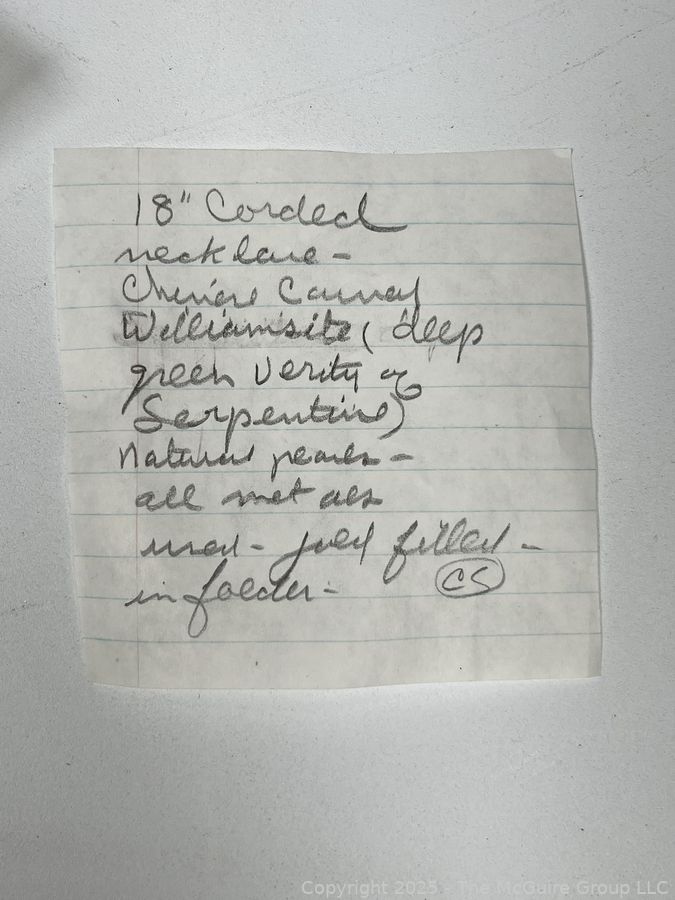 18" Corded
necklace -
Chinese Carved
Williamsite ( deep
green verity of
Serpentine)
Natural pearls -
all metals
used - gold filled -
in folder -
CS
Copyright 2025 - The McGuire Group LLC